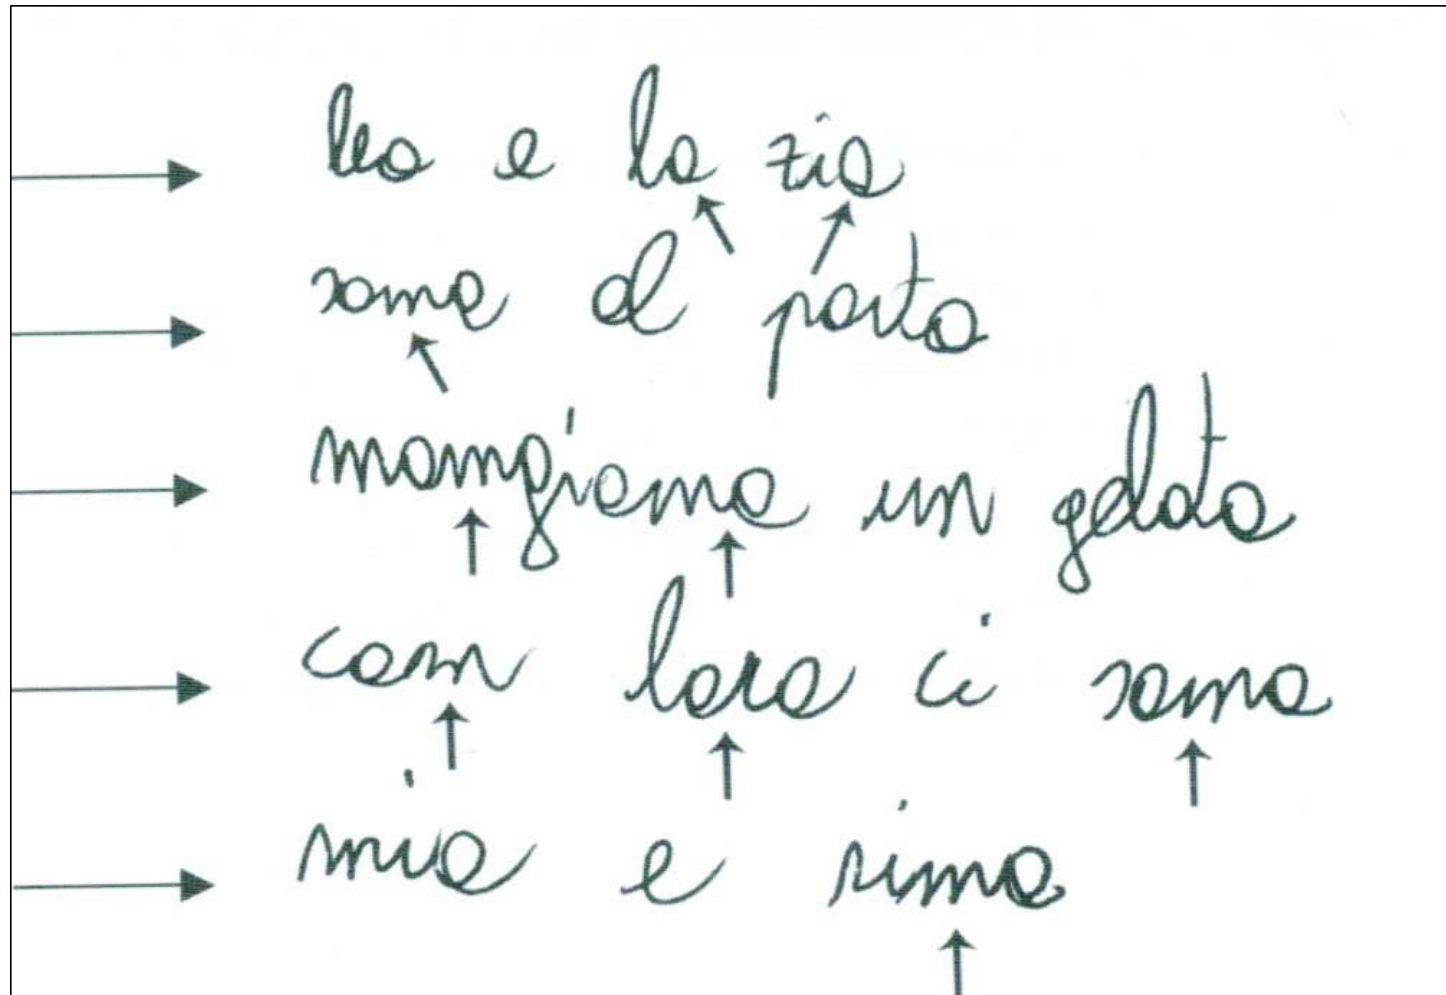 leo e la zia
sono al porto
mangiano un gelato
con loro ci sono
mia e rima